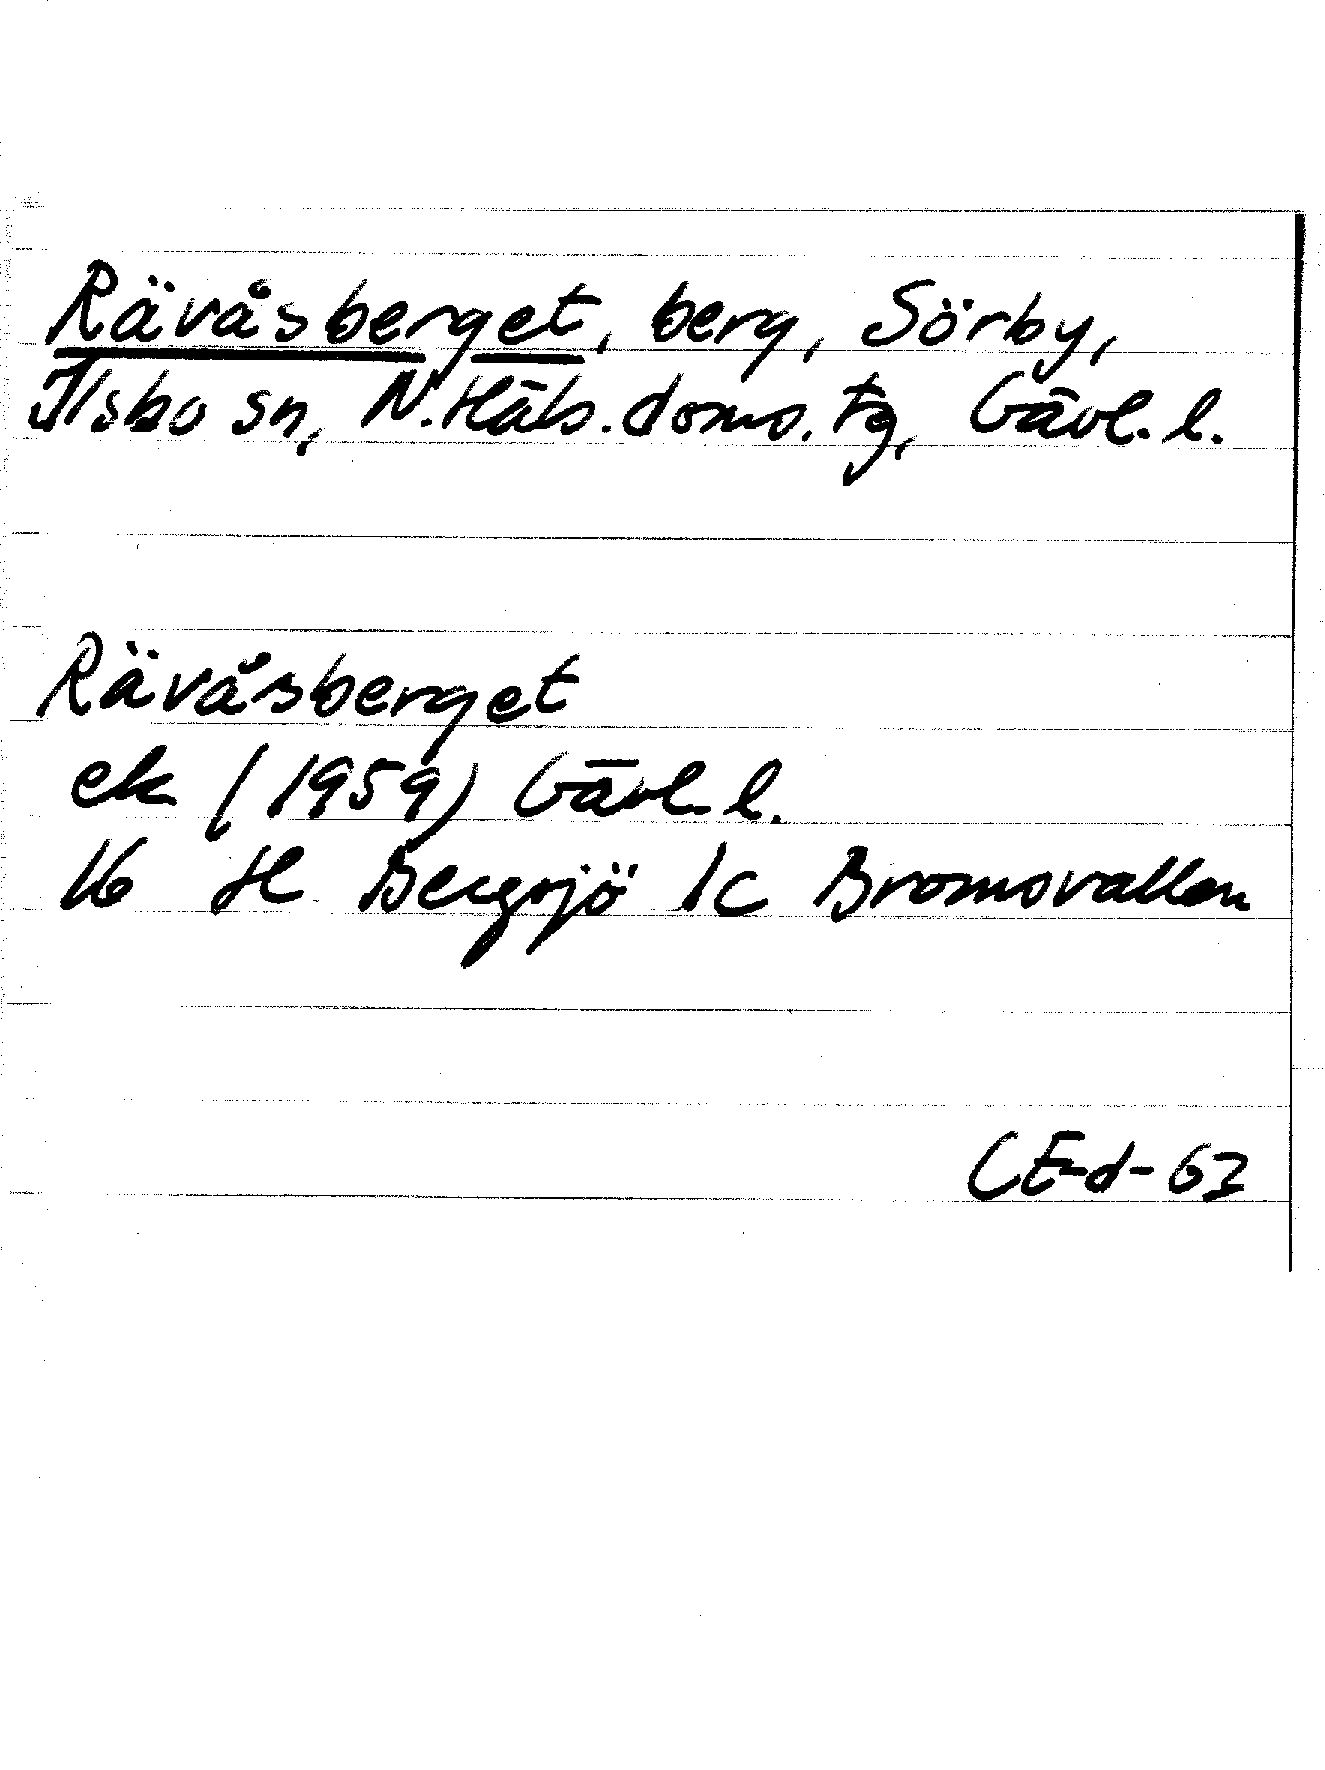 Rävåsberget, berg, Sörby,
Ilsbo sn, N.Häls.doms.tg, Gävl.l.
Rävåsberget
ek (1959) Gävl.l.
16 H Bergsjö 1c Bromsvallen
CE-d-63